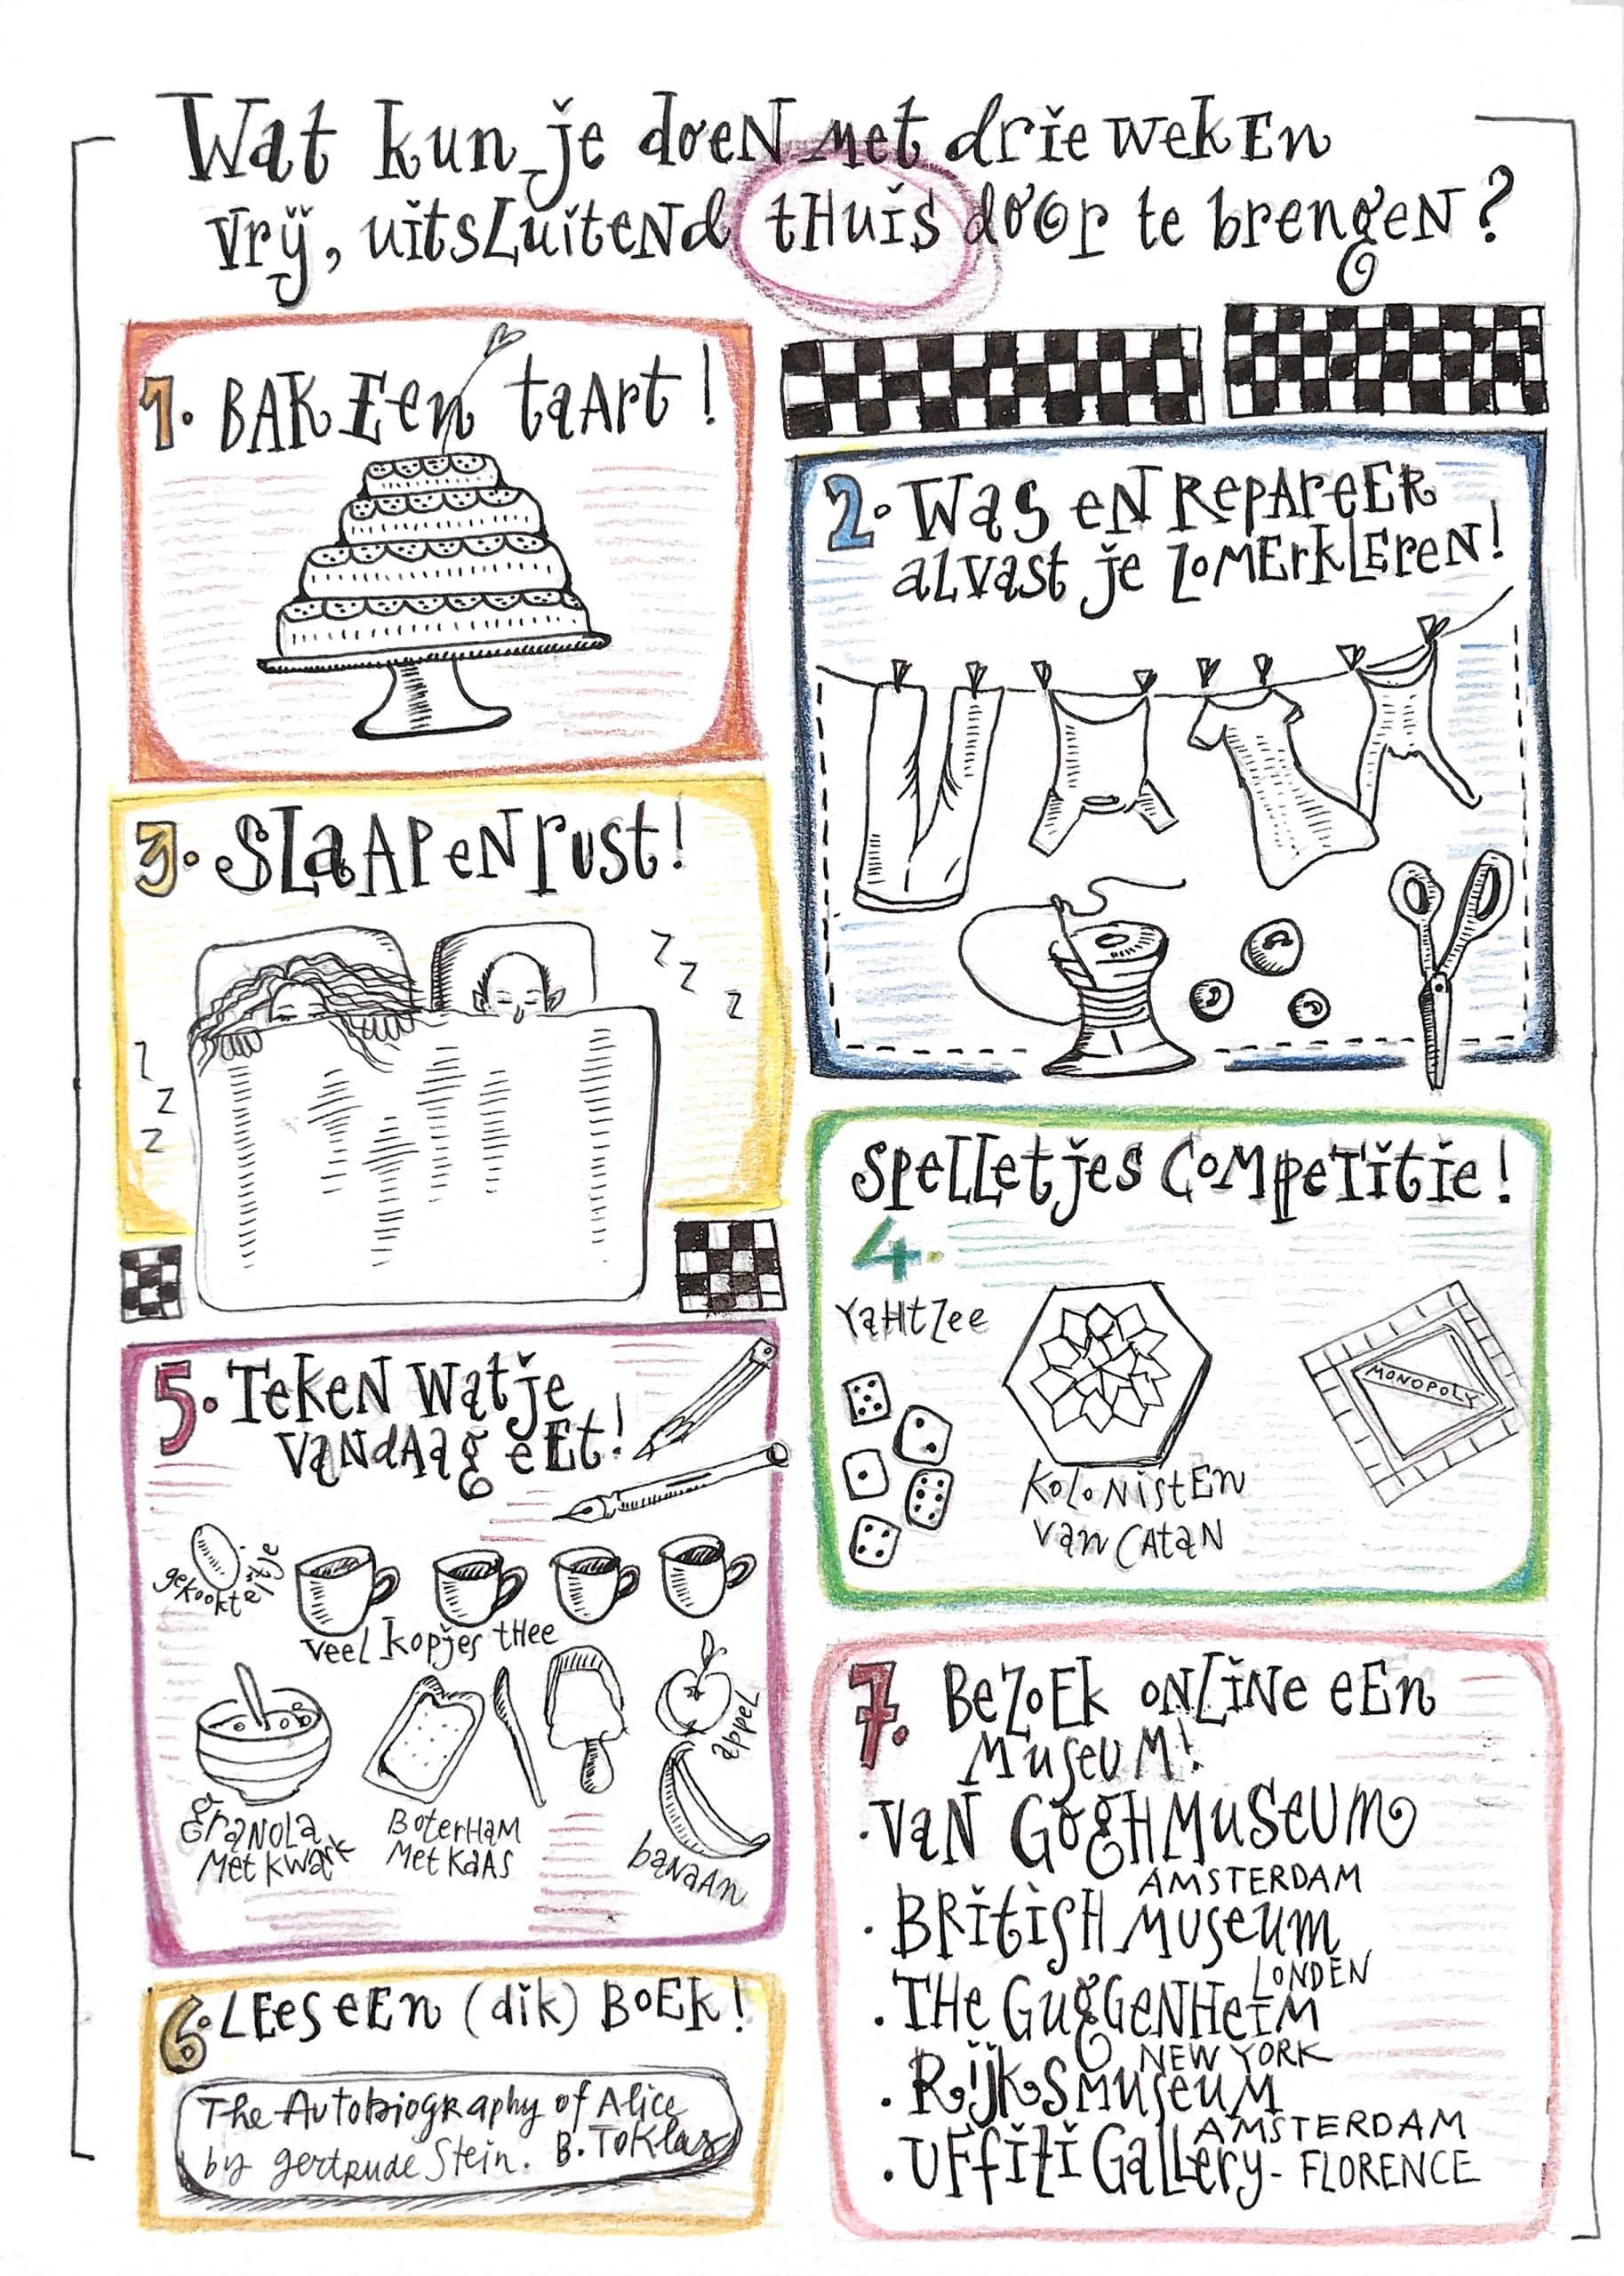 Wat kun je doen met drie weken
vrij, uitsluitend thuis door te brengen?
1. Bak een taart!
2. Was en repareer
alvast je zomerkleren!
3. Slaap en rust!
z
z
z
z
z
z
Spelletjes competitie!
4.
Yahtzee
Kolonisten
van Catan
MONOPOLY
5. Teken wat je
vandaag eet!
gekookt eitje
veel kopjes thee
granola
met kwark
Boterham
met kaas
appel
banaan
6. Lees een (dik) boek!
The Autobiography of Alice
B. Toklas
by gertrude Stein.
7. Bezoek online een
museum!
· Van Gogh Museum
AMSTERDAM
· British Museum
LONDEN
· The Guggenheim
NEW YORK
· Rijksmuseum
AMSTERDAM
· Uffizi Gallery - FLORENCE